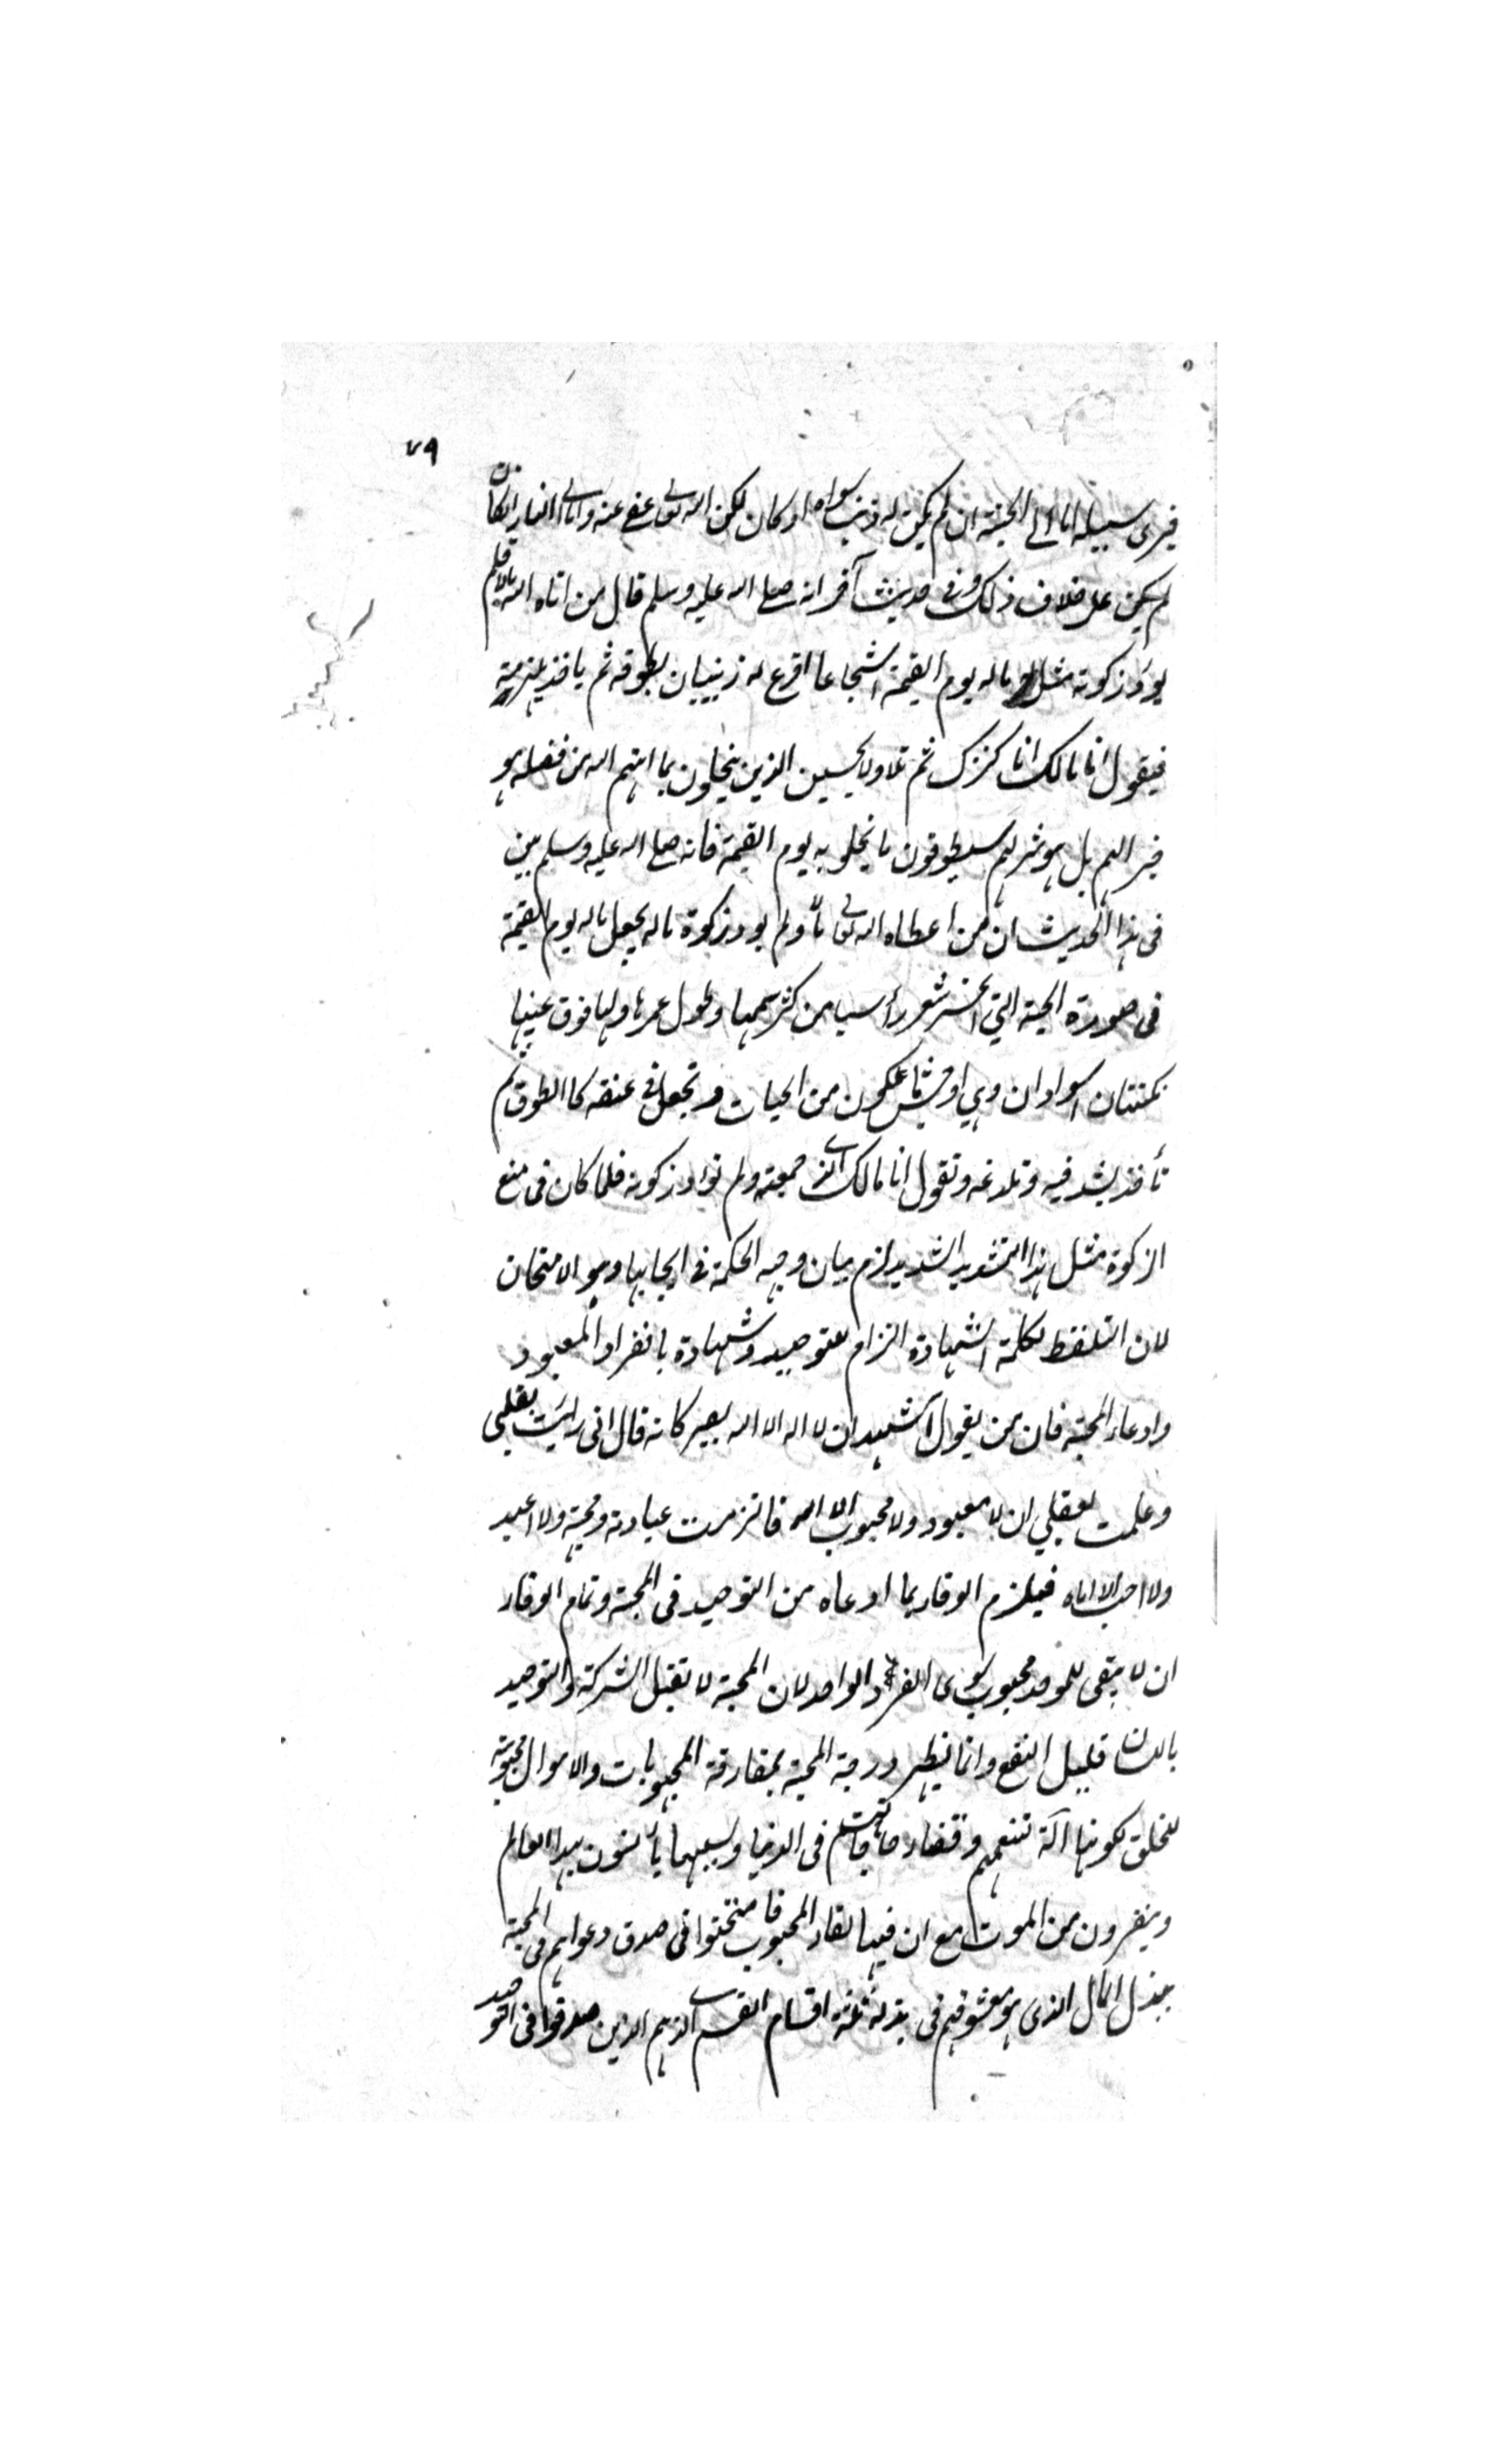 ٧٩
فيرى سبيله اما الى الجنة ان لم يكن له ذنب سواه او كان لكن الله تعالى عفى عنه واما الى النار ان كان
لم يكن على خلاف ذلك وفى حديث آخر انه صلى الله عليه وسلم قال من اتاه الله مالا فلم
يؤد زكوته مثل له ماله يوم القيمة شجاعا اقرع له زبيبتان يطوقه ثم ياخذ بلهزمتيه
فيقول انا مالك انا كنزك ثم تلا ولا يحسبن الذين يبخلون بما اتيهم الله من فضله هو
خيرا لهم بل هو شر لهم سيطوقون ما بخلوا به يوم القيمة فانه صلى الله عليه وسلم بين
فى هذا الحديث ان من اعطاه الله تعالى مالا ولم يود زكوة ماله يجعل ماله يوم القيمة
فى صورة الحية التي انحسر شعر رأسها من كثرة سمها وطول عمرها ولها فوق عينيها
نكتتان سوداوان وهي اوحش ما يكون من الحيات وتجعل فى عنقه كالطوق ثم
تأخذ بشدقيه وتلدغه وتقول انا مالك الذى جمعته ولم تؤد زكوته فلما كان فى منع
الزكوة مثل هذا التشديد الشديد لزم بيان وجه الحكمة فى ايجابها وهو الامتحان
لان التلفظ بكلمة الشهادة التزام للتوحيد وشهادة بانفراد المعبود
وادعاء المحبة فان من يقول اشهد ان لا اله الا الله يصير كانه قال انى رايت بقلبى
وعلمت بعقلي ان لا معبود ولا محبوب الا الله فالتزمت عبادته ومحبته ولا اعبد
ولا احب الا اياه فيلزم الوفاء بما ادعاه من التوحيد فى المحبة وتمام الوفاء
ان لا يبقى للموحد محبوب سوى الفرد الواحد لان المحبة لا تقبل الشركة والتوحيد
باللسان قليل النفع وانما يظهر درجة المحبة بمفارقة المحبوبات والاموال محبوبة
للخلق لكونها آلة تنعمهم وقضاء حاجاتهم فى الدنيا وبسببها يأنسون بهذا العالم
وينفرون من الموت مع ان فيها لقاء المحبوب فامتحنوا فى صدق دعواهم فى المحبة
ببذل المال الذى هو معشوقهم فى بذله ثلثة اقسام القسم الذين صدقوا فى التوحيد